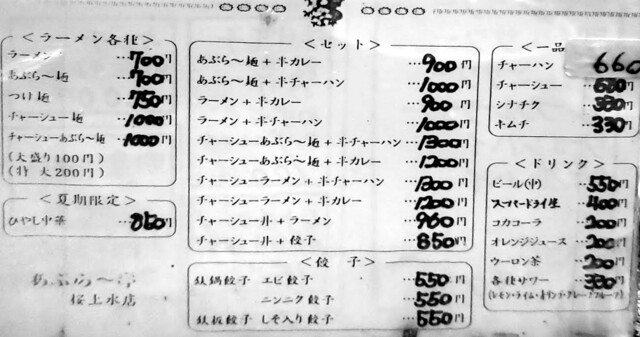 ＜ラーメン各種＞
ラーメン…700円
あぶら〜麺…700円
つけ麺…750円
チャーシュー麺…1000円
チャーシューあぶら〜麺…1000円
(大盛り100円)
(特大200円)
＜夏期限定＞
ひやし中華…850円
あぶら〜亭
桜上水店
＜セット＞
あぶら〜麺＋半カレー…900円
あぶら〜麺＋半チャーハン…1000円
ラーメン＋半カレー…900円
ラーメン＋半チャーハン…1000円
チャーシューあぶら〜麺＋半チャーハン…1300円
チャーシューあぶら〜麺＋半カレー…1200円
チャーシューラーメン＋半チャーハン…1300円
チャーシューラーメン＋半カレー…1200円
チャーシュー丼＋ラーメン…960円
チャーシュー丼＋餃子…850円
＜餃子＞
鉄鍋餃子 エビ餃子…550円
ニンニク餃子…550円
鉄板餃子 しそ入り餃子…550円
＜一品
チャーハン 660
チャーシュー…
シナチク…330円
キムチ…330円
＜ドリンク＞
ビール(中)…550円
スーパードライ生…400円
コカコーラ…200円
オレンジジュース…200円
ウーロン茶…200円
各種サワー…330円
(レモン・ライム・青リンゴ・グレープフルーツ)